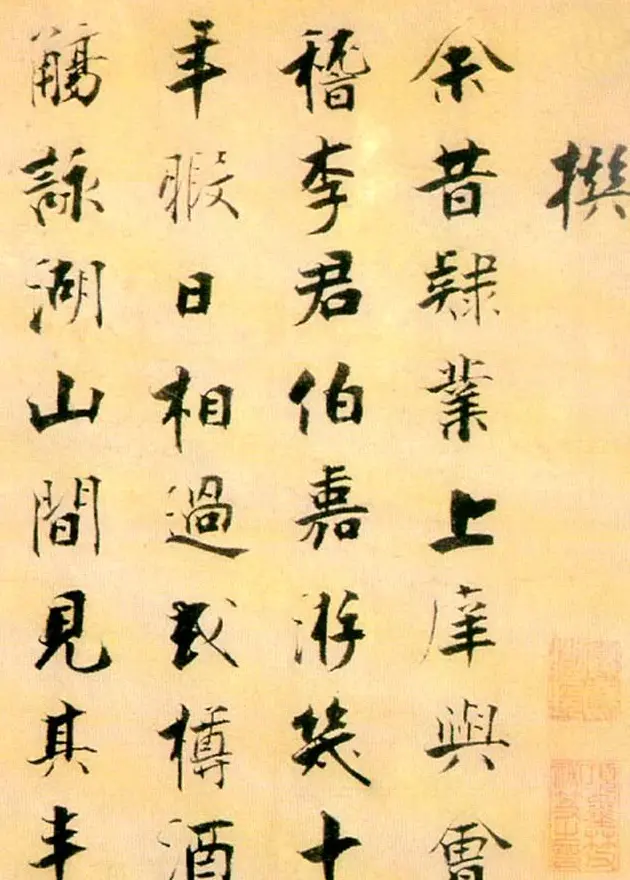 撰
余昔隸業上庠與會
稽李君伯嘉游幾十
年暇日相過或樽酒
觴詠湖山間見其丰